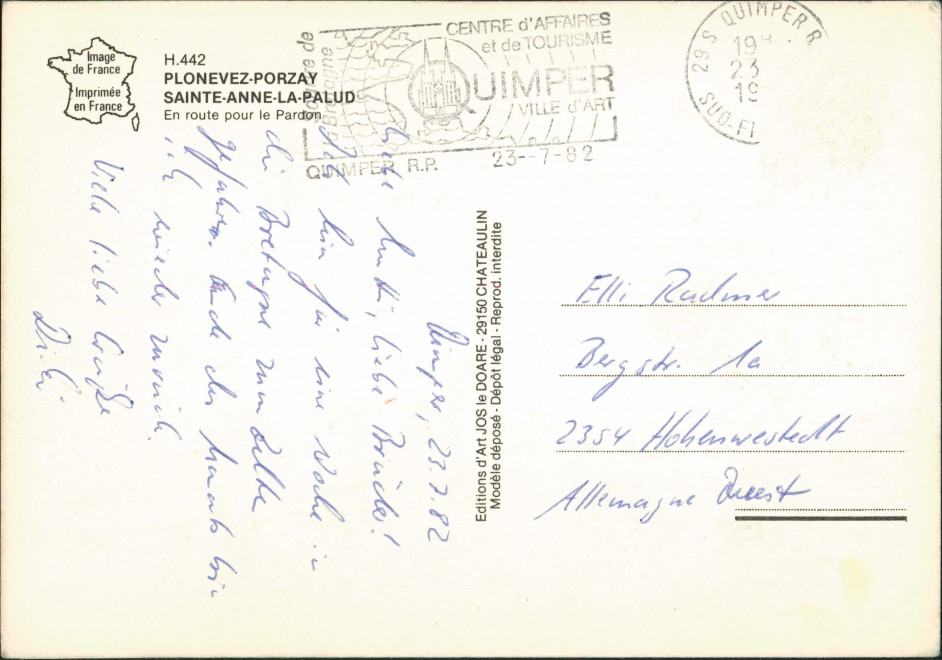 Image
de France
Imprimée
en France
H.442
PLONEVEZ-PORZAY
SAINTE-ANNE-LA-PALUD
En route pour le Pardon
Bretagne
CENTRE d'AFFAIRES
et de TOURISME
QUIMPER
VILLE d'ART
QUIMPER R.P.
23--7-82
29 S QUIMPER R
19H
23
19
SUD-FI
Quimper, 23.7.82
Liebe Mutti, liebe Brüder!
bin für eine Woche in
die Bretagne zum Zelten
gefahren. Ende des Monats bin
ich wieder zurück.
Viele liebe Grüße
Editions d'Art JOS le DOARE - 29150 CHATEAULIN
Modèle déposé - Dépôt légal - Reprod. interdite
Elli Radmer
Bergstr. 1a
2354 Hohenwestedt
Allemagne Ouest